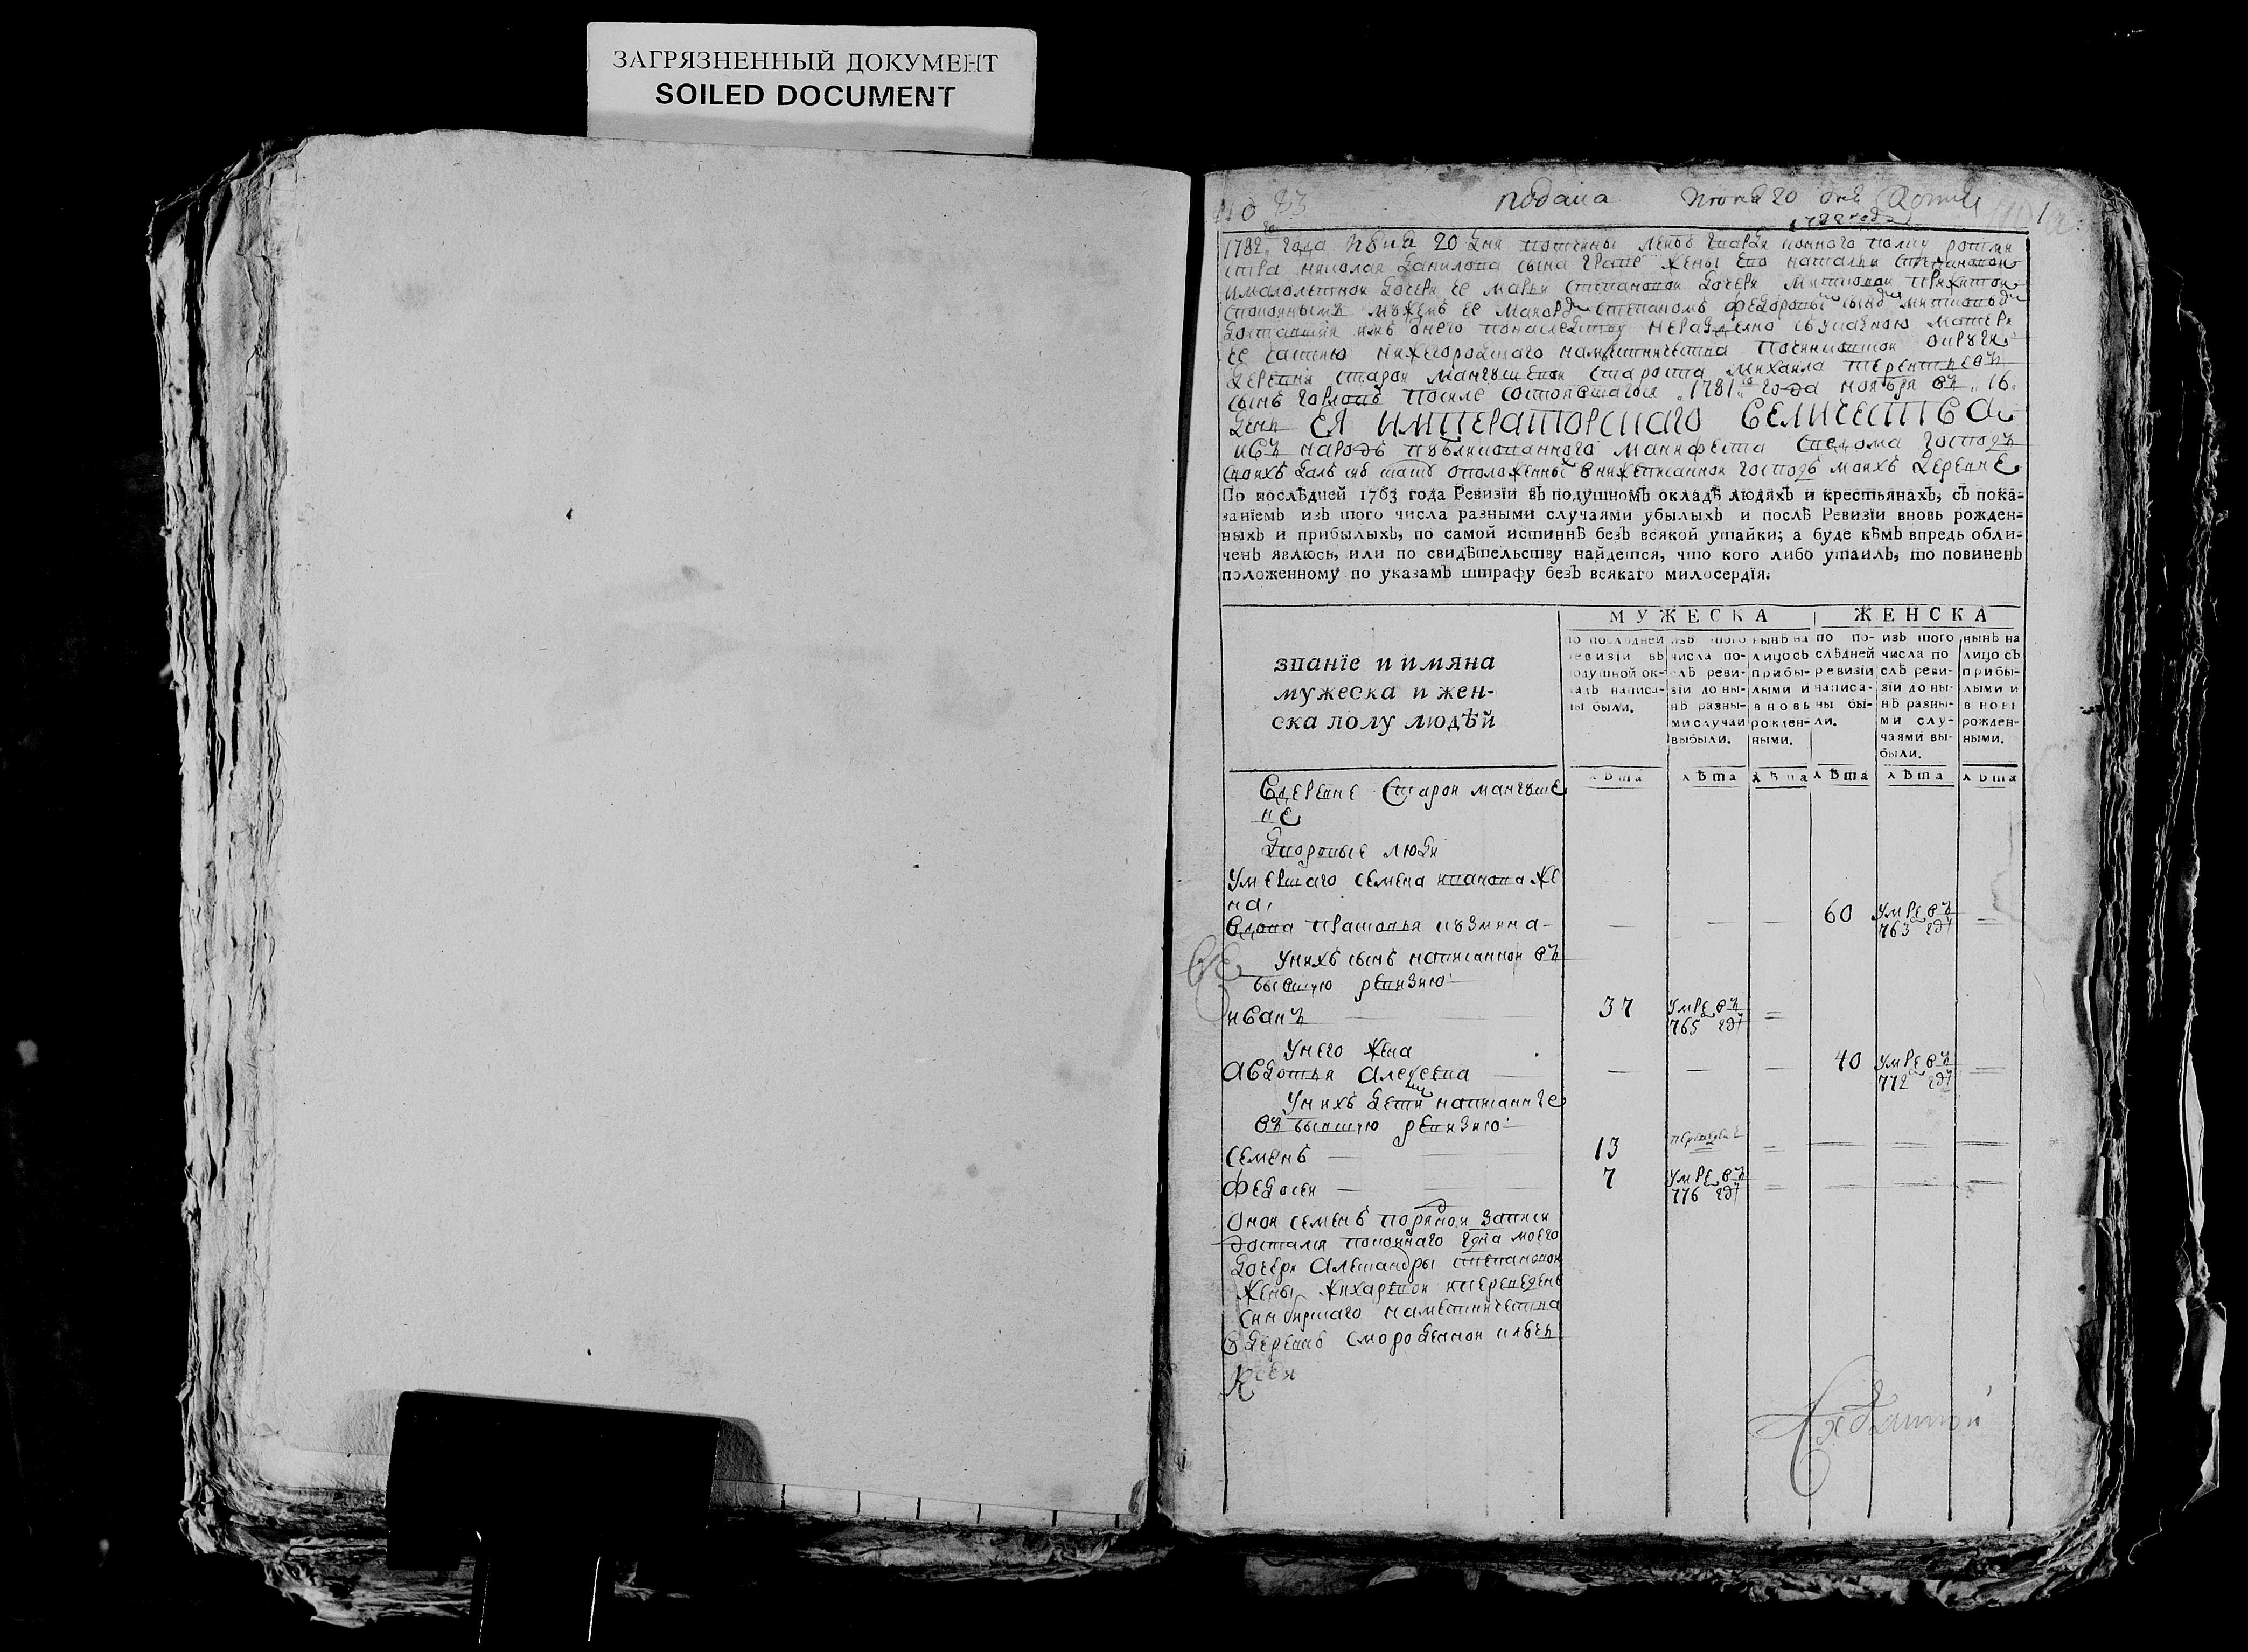 ЗАГРЯЗНЕННЫЙ ДОКУМЕНТ
SOILED DOCUMENT
подана июня 20 дня
1782 года июня 20 дня вотчины лейбъ гвардии коннаго полку ротми
стра николая данилова сына жены ево натальи степановой
и малолетной дочери ее марьи степановой дочери
с покойнымъ мужемъ ее степаномъ федоровы сыно
доставшия имъ онего понаследству нераздельно матери
ее частию нижегородскаго наместничества починковской округи
деревни старой староста михаила терентьевъ
сынъ после состоявшагося 1781 года ноября въ 16
день ЕЯ ИМПЕРАТОРСКАГО ВЕЛИЧЕСТВА
и въ народъ публикованного манифеста сведома господъ
своихъ далъ сию скаску о положенных в нижеписанной господъ моихъ деревне
По послѣдней 1763 года Ревизїи въ подушномъ окладѣ людяхъ и крестьянахъ, съ пока=
занїемъ изъ того числа разными случаями убылыхъ и послѣ Ревизїи вновь рожден=
ныхъ и прибылыхъ, по самой истиннѣ безъ всякой утайки; а буде кѣмъ впредь обли-
ченъ явлюсь, или по свидѣтельству найдется, что кого либо утаилъ, то повиненъ
положенному по указамъ штрафу безъ всякаго милосердїя.
МУЖЕСКА ЖЕНСКА
званїе и имяна
мужеска и жен-
ска полу людѣй
по послѣдней
ревизїи въ
подушной ок-
ладъ написа-
ны были.
изъ того
числа по-
слѣ реви-
зїи до ны-
нѣ разны-
ми случаи
выбыли.
нынѣ на
лицо съ
прибы-
лыми и
вновь
рожден-
ными.
по по-
слѣдней
ревизїи
написа-
ны бы-
ли.
изъ того
числа по
слѣ реви-
зїи до ны-
нѣ разны-
ми слу-
чаями вы-
были.
нынѣ на
лицо съ
прибы-
лыми и
вновь
рожден-
ными.
лѣта лѣта лѣта лѣта лѣта лѣта
Вдеревне Старой мангуше
ве
Дворовые люди
Умершаго семена иванова же
на
вдова прасковья кузмина — — — 60 умре въ 763 гду —
Унихъ сынъ написанной въ
бывшую ревизию
иванъ 37 умре въ 765 гду =
Унего жена
Авдотья Алексевна — — — 40 умре въ 772 гду =
Унихъ дети написанные
въ бывшую ревизию
семенъ 13 переведенъ = — — —
Федосеи 7 умре въ 776 гду = — — —
Оной семенъ порядной записи
достался покойнаго моего
дочери Александры степановой
жены жихаревой и переведенъ
синбирскаго наместничества
в деревню